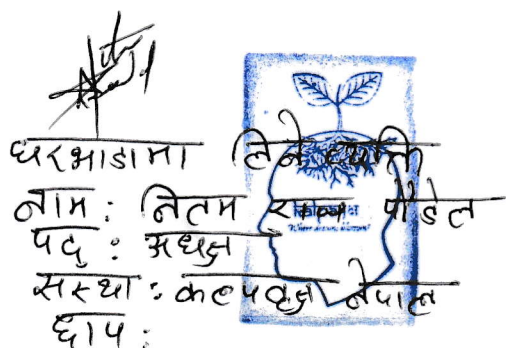 घरभाडामा लिने व्यक्ति
नाम : नितम राज पौडेल
पद : अध्यक्ष
संस्था : कल्पवृक्ष नेपाल
छाप :